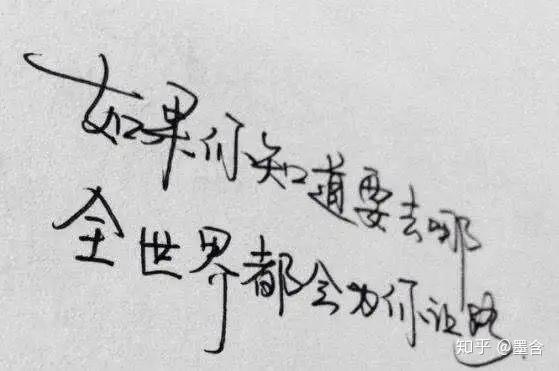 如果你知道要去哪
全世界都会为你让路
知乎 @墨含